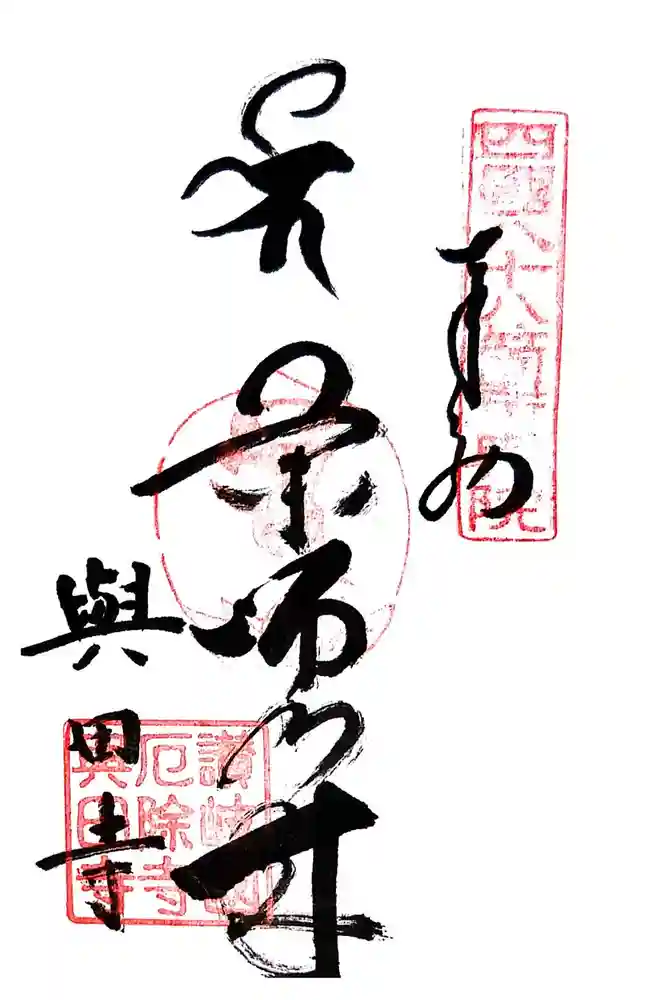 奉拝
薬師如来
與田寺
四國八十八箇 院
讃岐國
厄除寺
與田寺